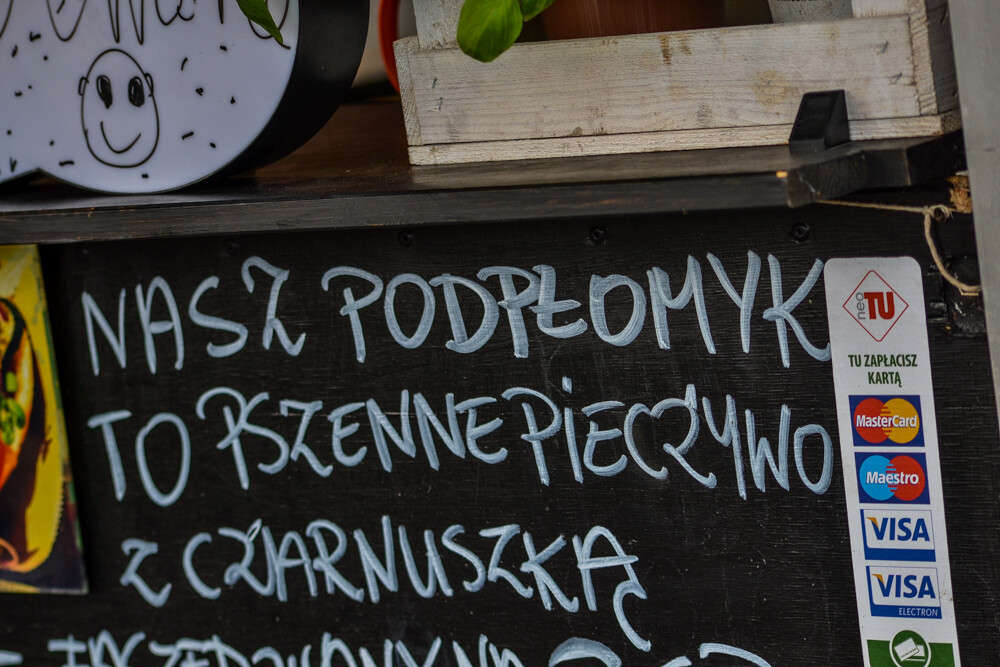 NASZ PODPŁOMYK
TO PSZENNE PiECZYWO
Z CZARNUSZKĄ
neo
TU
TU ZAPŁACISZ
KARTĄ
MasterCard
Maestro
VISA
VISA
ELECTRON